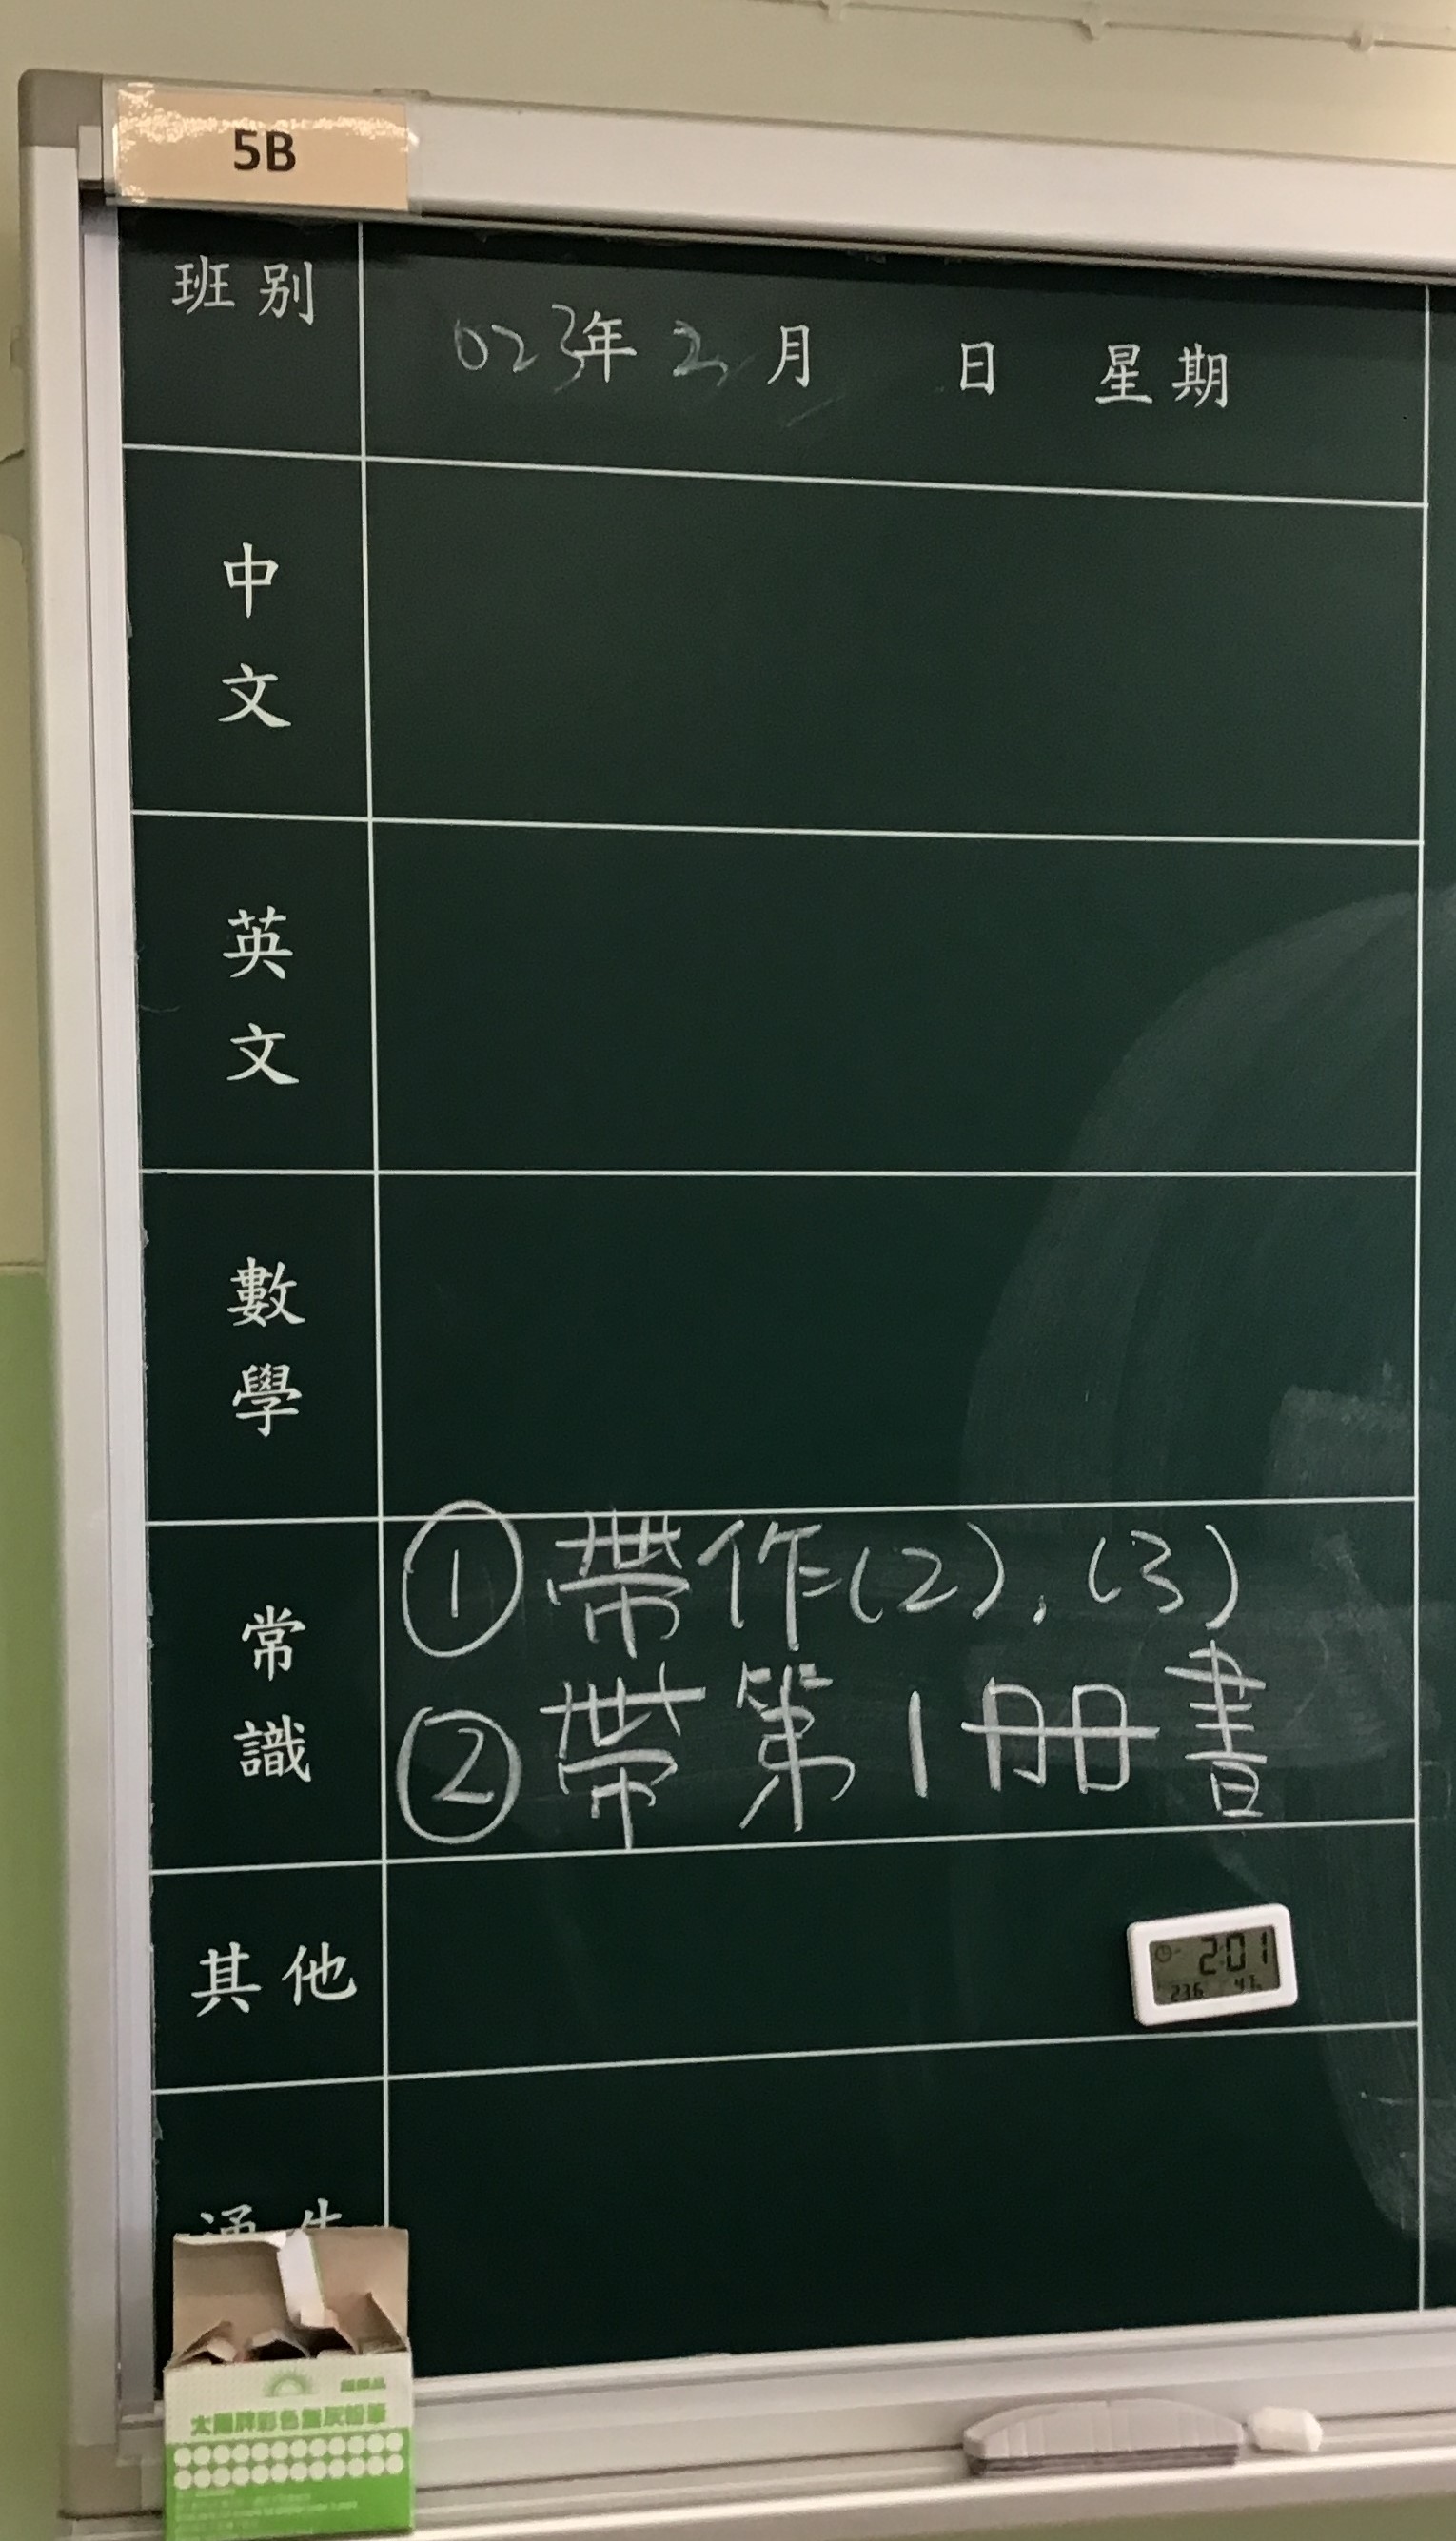 5B
班別
023年 2月 日 星期
中文
英文
數學
常識
①帶作(2),(3)
②帶第1冊書
其他
2:01
23.6
通告
太陽牌彩色無灰粉筆